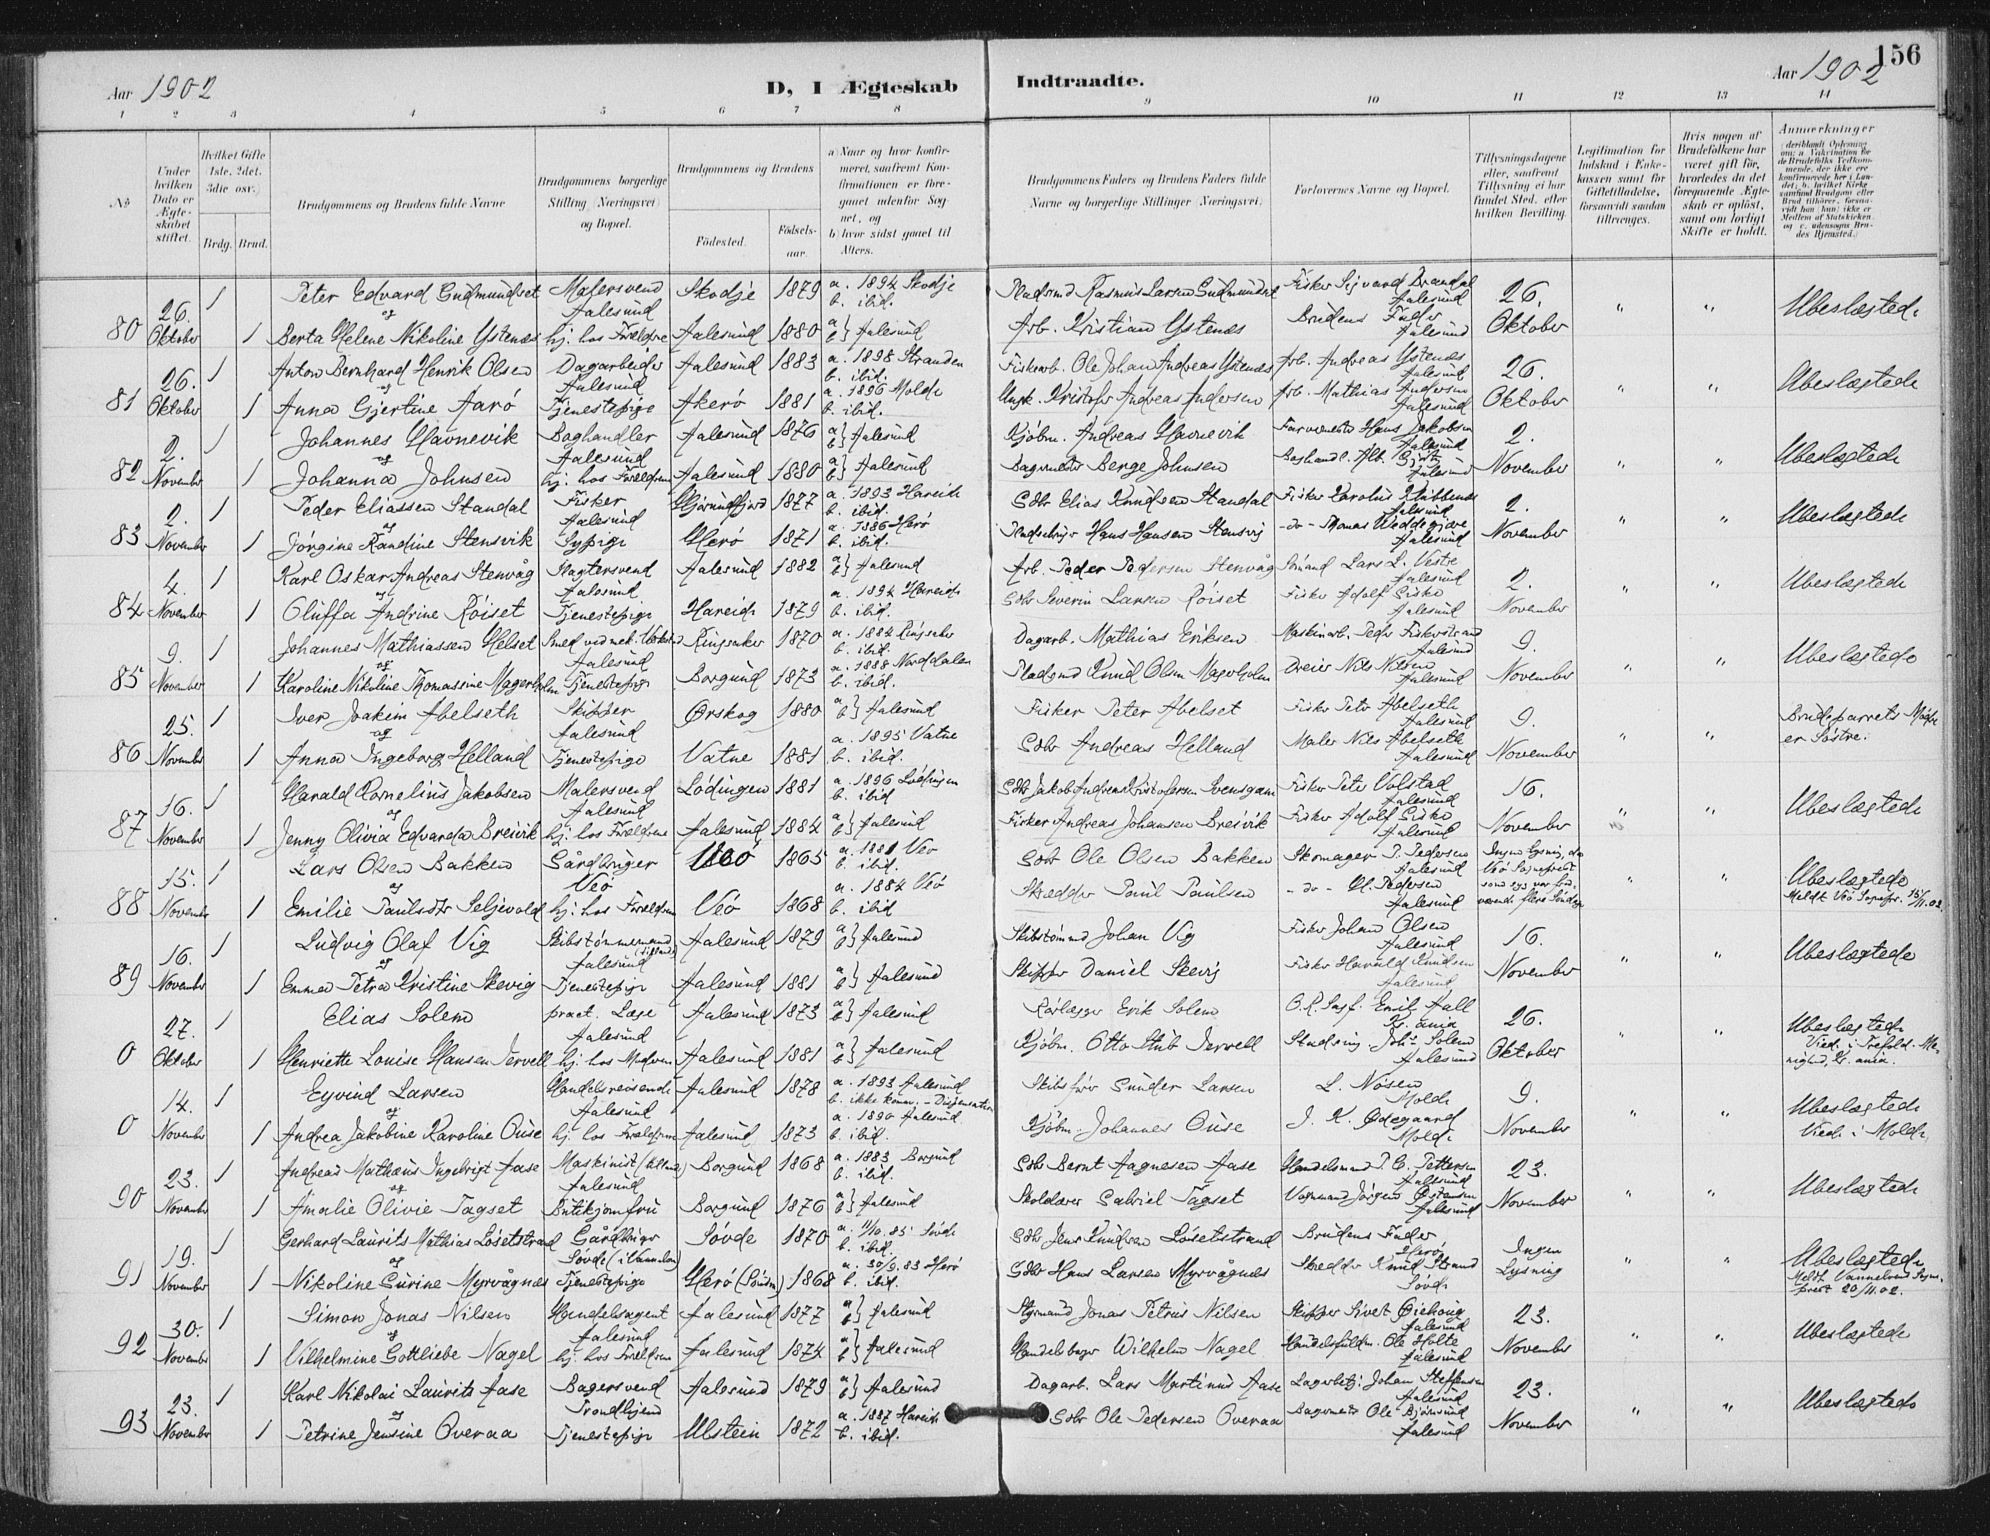 156
Aar 1902
D, I Ægteskab
Indtraadte.
Aar 1902
1 2 3 4 5 6 7 8 9 10 11 12 13 14
No.
Under hvilken Dato er Ægteskabet stiftet.
Hvilket Gifte (1ste, 2det, 3die osv.)
Brdg. Brud.
Brudgommens og Brudens fulde Navne
Brudgommens borgerlige Stilling (Næringsvei) og Bopæl.
Brudgommens og Brudens
Fødested.
Fødselsaar.
a) Naar og hvor konfirmeret, saafremt Konfirmationen er foregaaet udenfor Sognet, og
b) hvor sidst gaaet til Alters.
Brudgommens Faders og Brudens Faders fulde Navne og borgerlige Stillinger (Næringsvei)
Forlovernes Navne og Bopæl.
Tillysningsdagene eller, saafremt Tillysning ei har fundet Sted, efter hvilken Bevilling.
Legitimation for Indskud i Enkekassen samt for Giftetilladelse, forsaavidt saadan tiltrænges.
Hvis nogen af Brudefolkene har været gift før, hvorledes da det foregaaende Ægteskab er opløst, samt om lovligt Skifte er holdt.
Anmærkninger
80 26. Oktober 1 Peter Edvard Gudmundset Malersvend Aalesund Skodje 1879 a. 1894 Skodje b. ibid. Pladsmd Rasmus Larsen Gudmundset Fisker Sigvard Brandal Aalesund 26. Oktober " " Ubeslægtede
og
1 Berta Helene Nikoline Ystenæs hj. hos Forældre Aalesund 1880 a b} Aalesund Arb. Kristian Ystenæs Brudens Fader Aalesund
81 26. Oktober 1 Anton Bernhard Henrik Olsen Dagarbeider Aalesund Aalesund 1883 a. 1898 Stranden b. ibid. Fiskarb. Ole Johan Andreas Ystenæs Arb. Andreas Ystenæs Aalesund 26. Oktober " " Ubeslægtede
og
1 Anna Gjertine Aarö Tjenestepige Akerö 1881 a. 1896 Molde b. ibid. Kristofer Andreas Andersen Arb. Mathias Andersen Aalesund
82 2. November 1 Johannes Havnevik Boghandler Aalesund Aalesund 1876 a b} Aalesund Kjøbm. Andreas Havnevik Farvemester Hans Jakobsen Aalesund 2. November " " Ubeslægtede
og
1 Johanna Johnsen hj. hos Forældrene Aalesund 1880 a b} Aalesund Bagermester Berge Johnsen Boghandl. Alb. Aalesund
83 2. November 1 Peder Eliassen Standal Fisker Aalesund Hjørundfjord 1877 a. 1893 Hareide b. ibid. Gdbr Elias Knudsen Standal Fisker Karolus Klubbenes Aalesund 2. November " " Ubeslægtede
og
1 Jörgine Randine Stensvik Sypige Herö 1871 a. 1886 Herö b. ibid. Hans Hansen Stensvig -do- Thomas Aalesund
84 4. November 1 Karl Oskar Andreas Stenvåg Slagtersvend Aalesund Aalesund 1882 a b} Aalesund Arb. Peder Pedersen Stenvåg Sömand Lars L. Veste Aalesund 2. November " " Ubeslægtede
og
1 Oluffa Andrine Röiset Tjenestepige Hareide 1879 a. 1894 Hareide b. ibid. Gdbr Severin Larsen Röiset Fisker Adolf Giske Aalesund
85 9. November 1 Johannes Mathiassen Helset Smed ved mek. Verksted Aalesund Ringsaker 1870 a. 1884 Ringsaker b. ibid. Dagarb. Mathias Eriksen Maskinarb. Peder Fiskerstrand Aalesund 9. November " " Ubeslægtede
og
1 Karoline Nikoline Thomassine Magerholm Tjenestepige Borgund 1873 a. 1888 Norddalen b. ibid. Pladsmd Knud Olsen Magerholm Dreier Nils Nilsen Aalesund
86 25. November 1 Iver Joakim Abelseth Skipper Aalesund Ørskog 1880 a b} Aalesund Fisker Peter Abelset Fisker Peter Abelseth Aalesund 9. November " " Brudeparrets Mødre er Søstre.
og
1 Anna Ingeborg Helland Tjenestepige Vatne 1881 a. 1895 Vatne b. ibid. Gdbr Andreas Helland Maler Nils Abelseth Aalesund
87 16. November 1 Harald Kornelius Jakobsen Malersvend Aalesund Lödingen 1881 a. 1896 Lödingen b. ibid Gdbr Jakob Andreas Kristofersen Fisker Peter Volstad Aalesund 16. November " " Ubeslægtede
og
1 Jenny Olivia Edvarda Breivik hj. hos Forældrene Aalesund 1884 a b} Aalesund Fisker Andreas Johansen Breivik Fisker Adolf Giske Aalesund
88 15. November 1 Lars Olsen Bakken Gårdbruger Veö Veö 1865 a. 1881 Veö b. ibid. Gdbr Ole Olsen Bakken Skomager P. Pedersen Aalesund Ingen Lysning, da Veö Sognepræst " " Ubeslægtede Meldt Veö Sognepr. 15/11.02.
og
1 Emilie Paulsdtr Seljevold hj. hos Forældrene Veö 1868 a. 1884 Veö b. ibid Skrædder Paul Paulsen -do- Ol. Pedersen Aalesund
89 16. November 1 Ludvig Olaf Vig Skibstømmermand Aalesund Aalesund 1879 a b} Aalesund Skibstømmd Johan Vig Fisker Johan Olsen Aalesund 16. November " " Ubeslægtede
og
1 Emma Petra Kristine Skevig Tjenestepige Aalesund 1881 a b} Aalesund Skipper Daniel Skevig Fisker Harald Knudsen Aalesund
0 27. Oktober 1 Elias Solem pract. Læge Aalesund Aalesund 1873 a b} Aalesund Rørlægger Erik Solem O.R.Sagf. Emil Aall Kr.ania 26. Oktober " " Ubeslægtede Viede i Trefold. Menighed, Kr.ania.
1 Henriette Louise Hansen Jervell hj. hos Moderen Aalesund 1881 a b} Aalesund Kjøbm. Otto Stub Jervell Stadsing. Johs Solem Aalesund
0 14. November 1 Eyvind Larsen Handelsreisende Aalesund Aalesund 1878 a. 1893 Aalesund b. ikke komm. - Dispensation Skibsfører Gunder Larsen L. Nøisen Molde 9. November " " Ubeslægtede Viede i Molde
og
1 Andrea Jakobine Karoline Ouse hj. hos Forældrene Aalesund 1873 a. 1890 Aalesund b. ibid. Kjøbm. Johannes Ouse J. K. Ødegaard Molde
90 23. November 1 Andreas Mathæus Ingebrigt Aase Maskinist Aalesund Borgund 1868 a. 1883 Borgund b. ibid. Gdbr Bernt Aagnesen Aase Handelsmand P. C. Pettersen Aalesund 23. November " " Ubeslægtede
og
1 Amalie Olivie Tagset Butikjomfru Borgund 1876 a b} Aalesund Skolelærer Gabriel Tagset Vognmand Jørgen Østensen Aalesund
91 19. November 1 Gerhard Laurits Mathias Løsetstrand Gårdbruger Søvde (i Vannelven) Søvde 1870 a. 11/10.85 Søvde b. ibid Gdbr Jens Knudsen Løsetstrand Brudens Fader Herö Ingen Lysning " " Ubeslægtede Meldt Vannelvens Sogneprest 20/11.02.
og
1 Nikoline Gurine Myrvågnes Tjenestepige Herö 1868 a. 30/9.83 Herö b. ibid. Gdbr Hans Larsen Myrvågnes Skrædder Knud Strand Søvde
92 30. November 1 Simon Jonas Nilsen Handelsagent Aalesund Aalesund 1877 a b} Aalesund Styrmand Jonas Petrus Nilsen Skipper Sivert Giehoug Aalesund 23. November " " Ubeslægtede
og
1 Vilhelmine Gottliebe Nagel hj. hos Forældrene Aalesund 1874 a b} Aalesund Handelsborger Wilhelm Nagel Handelsfuldm. Ole Holte Aalesund
93 23. November 1 Karl Nikolai Laurits Aase Bagersvend Trondhjem Aalesund 1879 a b} Aalesund Dagarb. Lars Martinus Aase Lagerbetj. Johan Steffensen Aalesund 23. November " " Ubeslægtede
og
1 Petrine Jensine Overaa Tjenestepige Ulstein 1872 a. 1887 Hareide b. ibid. Gdbr Ole Pedersen Overaa Bagermester Ole Bjørnsund Aalesund